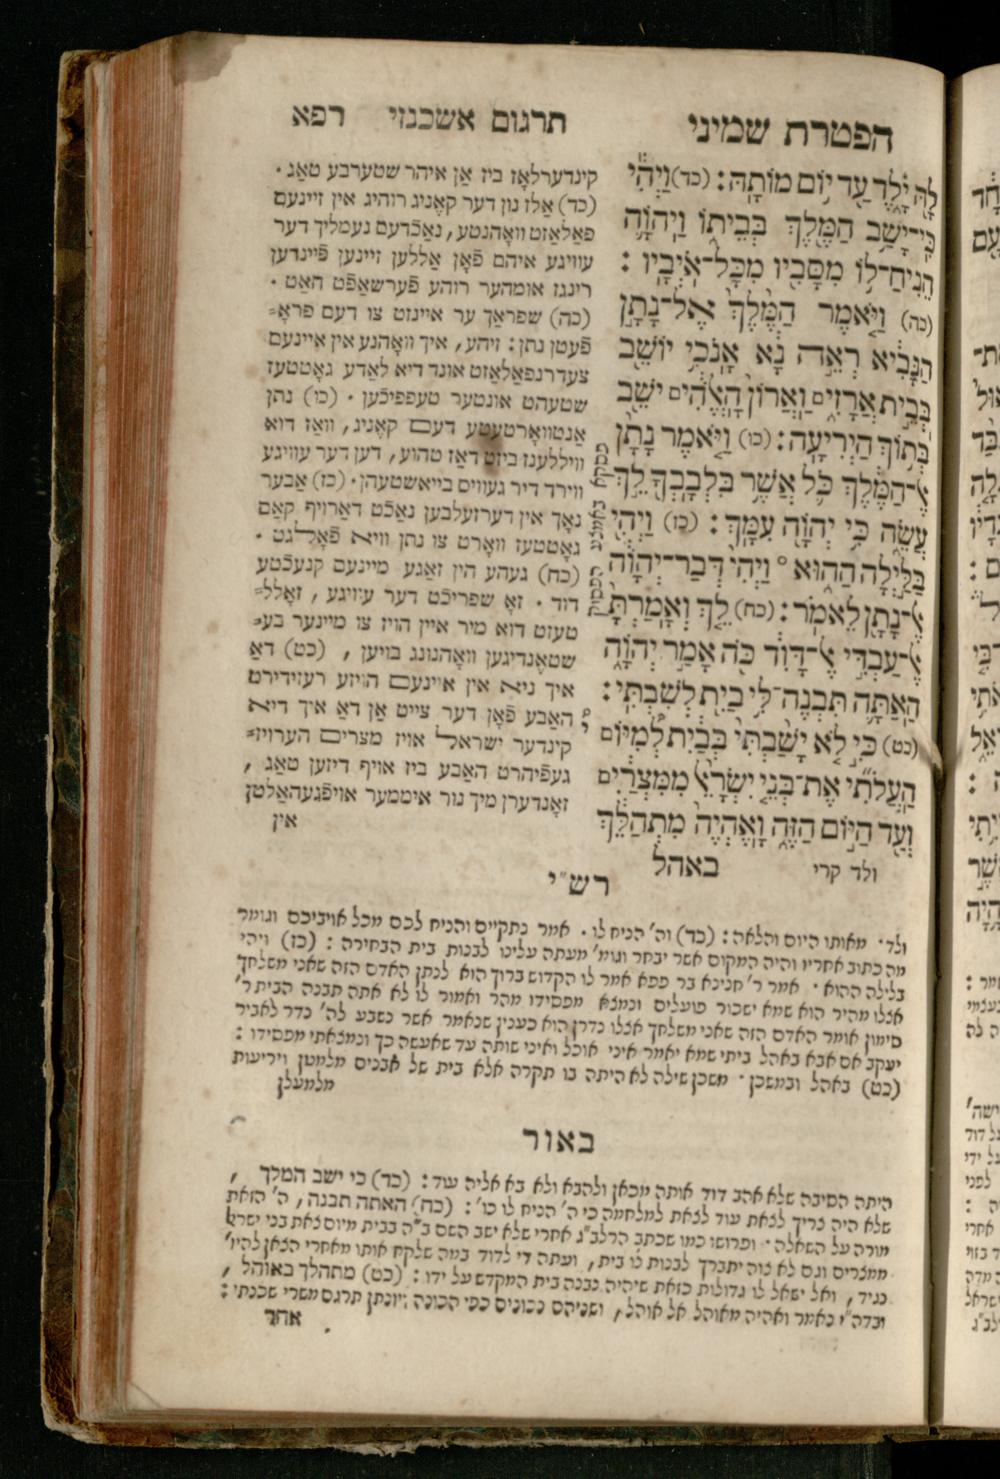 הפטרת שמיני
תרגום אשכנזי רפא
לָהּ יָלֶד עַד יוֹם מוֹתָהּ: (כד) וַיְהִי
כִּי־יָשַׁב הַמֶּלֶךְ בְּבֵיתוֹ וַיהוָה
הֵנִיחַ־לוֹ מִסָּבִיב מִכָּל־אֹיְבָיו :
(כה) וַיֹּאמֶר הַמֶּלֶךְ אֶל־נָתָן
הַנָּבִיא רְאֵה נָא אָנֹכִי יוֹשֵׁב
בְּבֵית אֲרָזִים וַאֲרוֹן הָאֱלֹהִים יֹשֵׁב
בְּתוֹךְ הַיְרִיעָה: (כו) וַיֹּאמֶר נָתָן
אֶל־הַמֶּלֶךְ כֹּל אֲשֶׁר בִּלְבָבְךָ לֵךְ
עֲשֵׂה כִּי יְהוָה עִמָּךְ: (כז) וַיְהִי
בַּלַּיְלָה הַהוּא ° וַיְהִי דְּבַר־יְהוָה
אֶל־נָתָן לֵאמֹר: (כח) לֵךְ וְאָמַרְתָּ
אֶל־עַבְדִּי אֶל־דָּוִד כֹּה אָמַר יְהוָה
הַאַתָּה תִּבְנֶה־לִּי בַיִת לְשִׁבְתִּי:
(כט) כִּי לֹא יָשַׁבְתִּי בְּבַיִת לְמִיּוֹם
הַעֲלֹתִי אֶת־בְּנֵי יִשְׂרָאֵל מִמִּצְרַיִם
וְעַד הַיּוֹם הַזֶּה וָאֶהְיֶה מִתְהַלֵּךְ
ולד קרי באהל
פסקא באמצע הפסוק
קינדערלאָז ביז אַן איהר שטערבע טאַג .
(כד) אַלז נון דער קאָניג רוהיג אין זיינעם
פּאַלאַזט וואָהנטע, נאַכֿדעם נעמליך דער
עוויגע איהם פֿאָן אַללען זיינען פֿיינדען
רינגז אומהער רוהע פֿערשאַפֿט האַט .
(כה) שפראַך ער איינזט צו דעם פראָ=
פֿעטן נתן: זיהע, איך וואָהנע אין איינעם
צעדרנפּאַלאַזט אונד דיא לאַדע גאָטטעז
שטעהט אונטער טעפּפּיכֿען . (כו) נתן
אַנטוואָרטעטע דעם קאָניג, וואַז דוא
וויללענז ביזט דאַז טהוע, דען דער עוויגע
ווירד דיר געוויס בייאשטעהן. (כז) אַבער
נאָך אין דערזעלבען נאַכֿט דאַרויף קאַם
גאָטטעז וואָרט צו נתן וויא פֿאָלגט .
(כח) געהע הין זאַגע מיינעם קנעכֿטע
דוד . זאָ שפריכֿט דער עוויגע , זאָלל=
טעזט דוא מיר איין הויז צו מיינער בע=
שטאָנדיגען וואָהנונג בויען , (כט) דאַ
איך ניא אין איינעם הויזע רעזידירט
האַבע פֿאָן דער צייט אַן דאַ איך דיא
קינדער ישראל אויז מצרים הערויז=
געפֿיהרט האַבע ביז אויף דיזען טאַג ,
זאָנדערן מיך נור איממער אויפֿגעהאַלטן
אין
רש"י
ולד . מאותו היום והלאה : (כד) וה' הניח לו . אמר נתקיים והניח לכם מכל אויביכם וגומר
מה כתוב אחריו והיה המקום אשר יבחר וגומ' מעתה עלינו לבנות בית הבחירה : (כז) ויהי
בלילה ההוא . אמר ר' חנינא בר פפא אמר לו הקדוש ברוך הוא לנתן האדם הזה שאני משלחך
אצלו מהיר הוא שמא ישכור פועלים ונמצא מפסידו מהר ואמור לו לא אתה תבנה הבית ר'
סימון אומר האדם הזה שאני משלחך אצלו נדרן הוא כענין שנאמר אשר נשבע לה' נדר לאביר
יעקב אם אבא באהל ביתי שמא יאמר איני אוכל ואיני שותה עד שאעשה כך ונמצאתי מפסידו :
(כט) באהל ובמשכן . משכן שילה לא היתה בו תקרה אלא בית של אבנים מלמטן ויריעות
מלמעלן
באור
היתה הסיבה שלא אהב דוד אותה מכאן ולהבא ולא בא אליה עוד : (כד) כי ישב המלך ,
שלא היה צריך לצאת עוד לצאת למלחמה כי ה' הניח לו כו' : (כח) האתה תבנה, ה' הזאת
מורה על השאלה . ופרושו כמו שכתב הרלב"ג אחרי שלא ישב השם ב"ה בבית מיום צאת בני ישראל
ממצרים וגם לא צוה יתברך לבנות לו בית , ועתה די לדוד במה שלקח אותו מאחרי הצאן להיו'
נגיד , ואל ישאל לו גדולות כזאת שיהיה נבנה בית המקדש על ידו : (כט) מתהלך באוהל ,
ובדה"י נאמר ואהיה מאוהל אל אוהל, ושניהם נכונים כפי הכונה .יונתן תרגם משרי שכנתי :
אחר